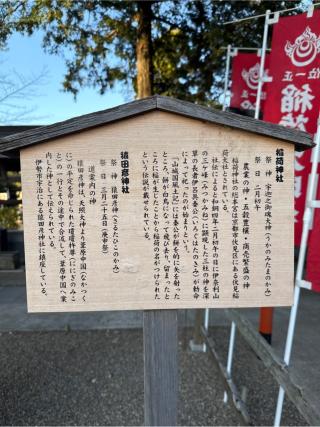 稲荷神社
祭神 宇迦之御魂大神(うかのみたまのかみ)
祭日 二月初午
農業の神・五穀豊穣・商売繁盛の神
稲荷神社の総本宮は京都市伏見区にある伏見稲
荷大社
社伝によると和銅四年二月初午の日に伊奈利山
の三ケ峰(みつかみね)に顕現した三柱の神を深
草の長者伊呂具秦公(いろぐはたのきみ)が勅命
によって祀ったのが始まりという。
「山城国風土記」には秦公が餅を的に矢を射った
ところ、餅が白鳥になって飛び去り、留まったと
ころに稲が生じたことから稲荷の名がつけられた
という伝説が載せられている。
猿田彦神社
祭神 猿田彦神(さるたひこのかみ)
祭日 三月二十五日(庚申祭)
道案内の神
猿田彦神は、天照大神より葦原中国(なかつく
に)の平定を命じられた邇邇芸尊(ににぎのみこ
と)の一行とその途中で合流して、葦原中国へ案
内した神として伝えられている。
伊勢市宇治にある猿田彦神社に鎮座している。
正一位
稲荷